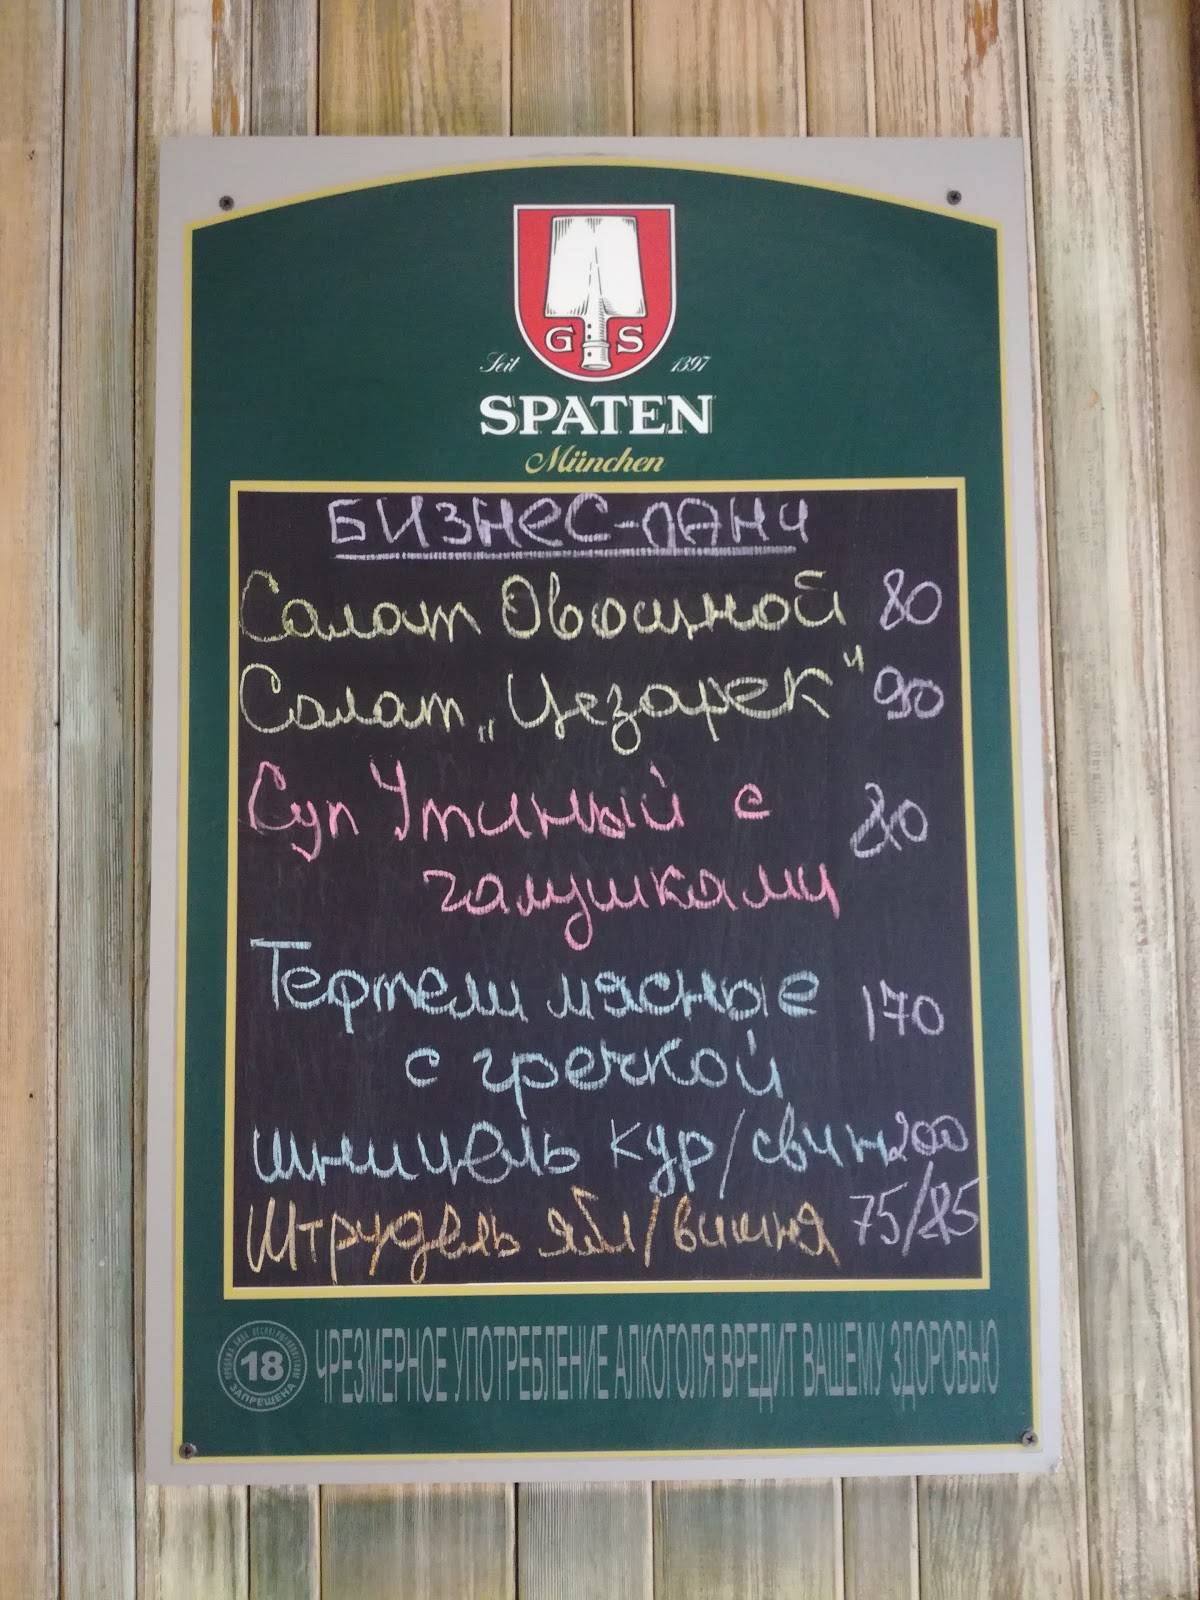 G S
Seit 1397
SPATEN
München
БИЗНЕС-ЛАНЧ
Салат Овощной 80
Салат „Цезарек“ 90
Суп Утиный с 80
галушками
Тефтели мясные 170
с гречкой
шницель кур/свин 200
Штрудель ябл/вишня 75/85
18
ЗАПРЕЩЕНА
ЧРЕЗМЕРНОЕ УПОТРЕБЛЕНИЕ АЛКОГОЛЯ ВРЕДИТ ВАШЕМУ ЗДОРОВЬЮ